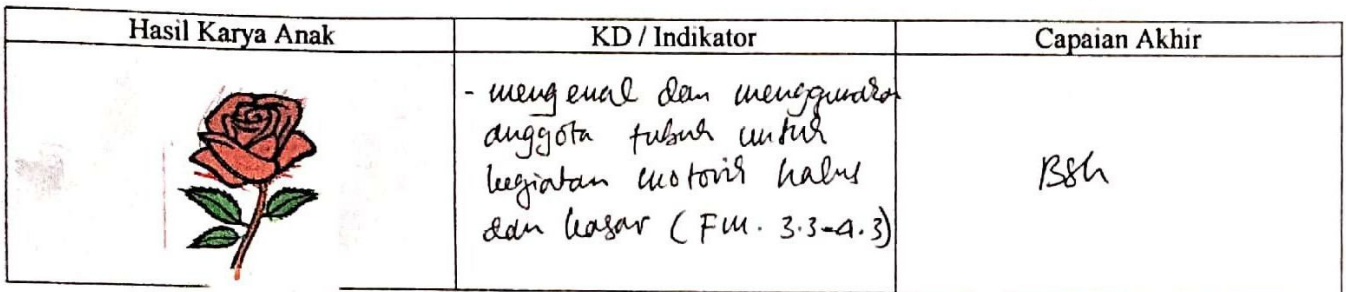 Hasil Karya Anak
KD / Indikator
Capaian Akhir
- mengenal dan menggunakan
anggota tubuh untuk
kegiatan motorik halus
dan kasar (FM. 3.3-4.3)
BSh